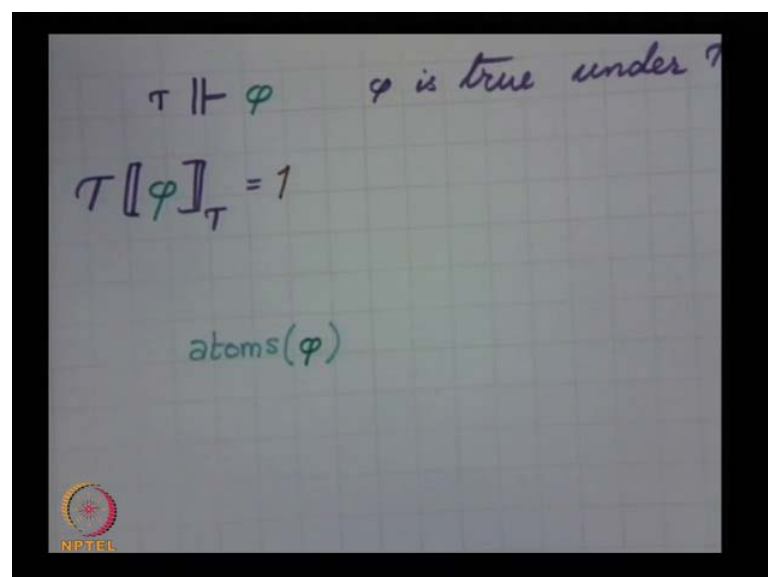 τ ⊩ φ φ is true under τ
T⟦φ⟧τ = 1
atoms(φ)
NPTEL